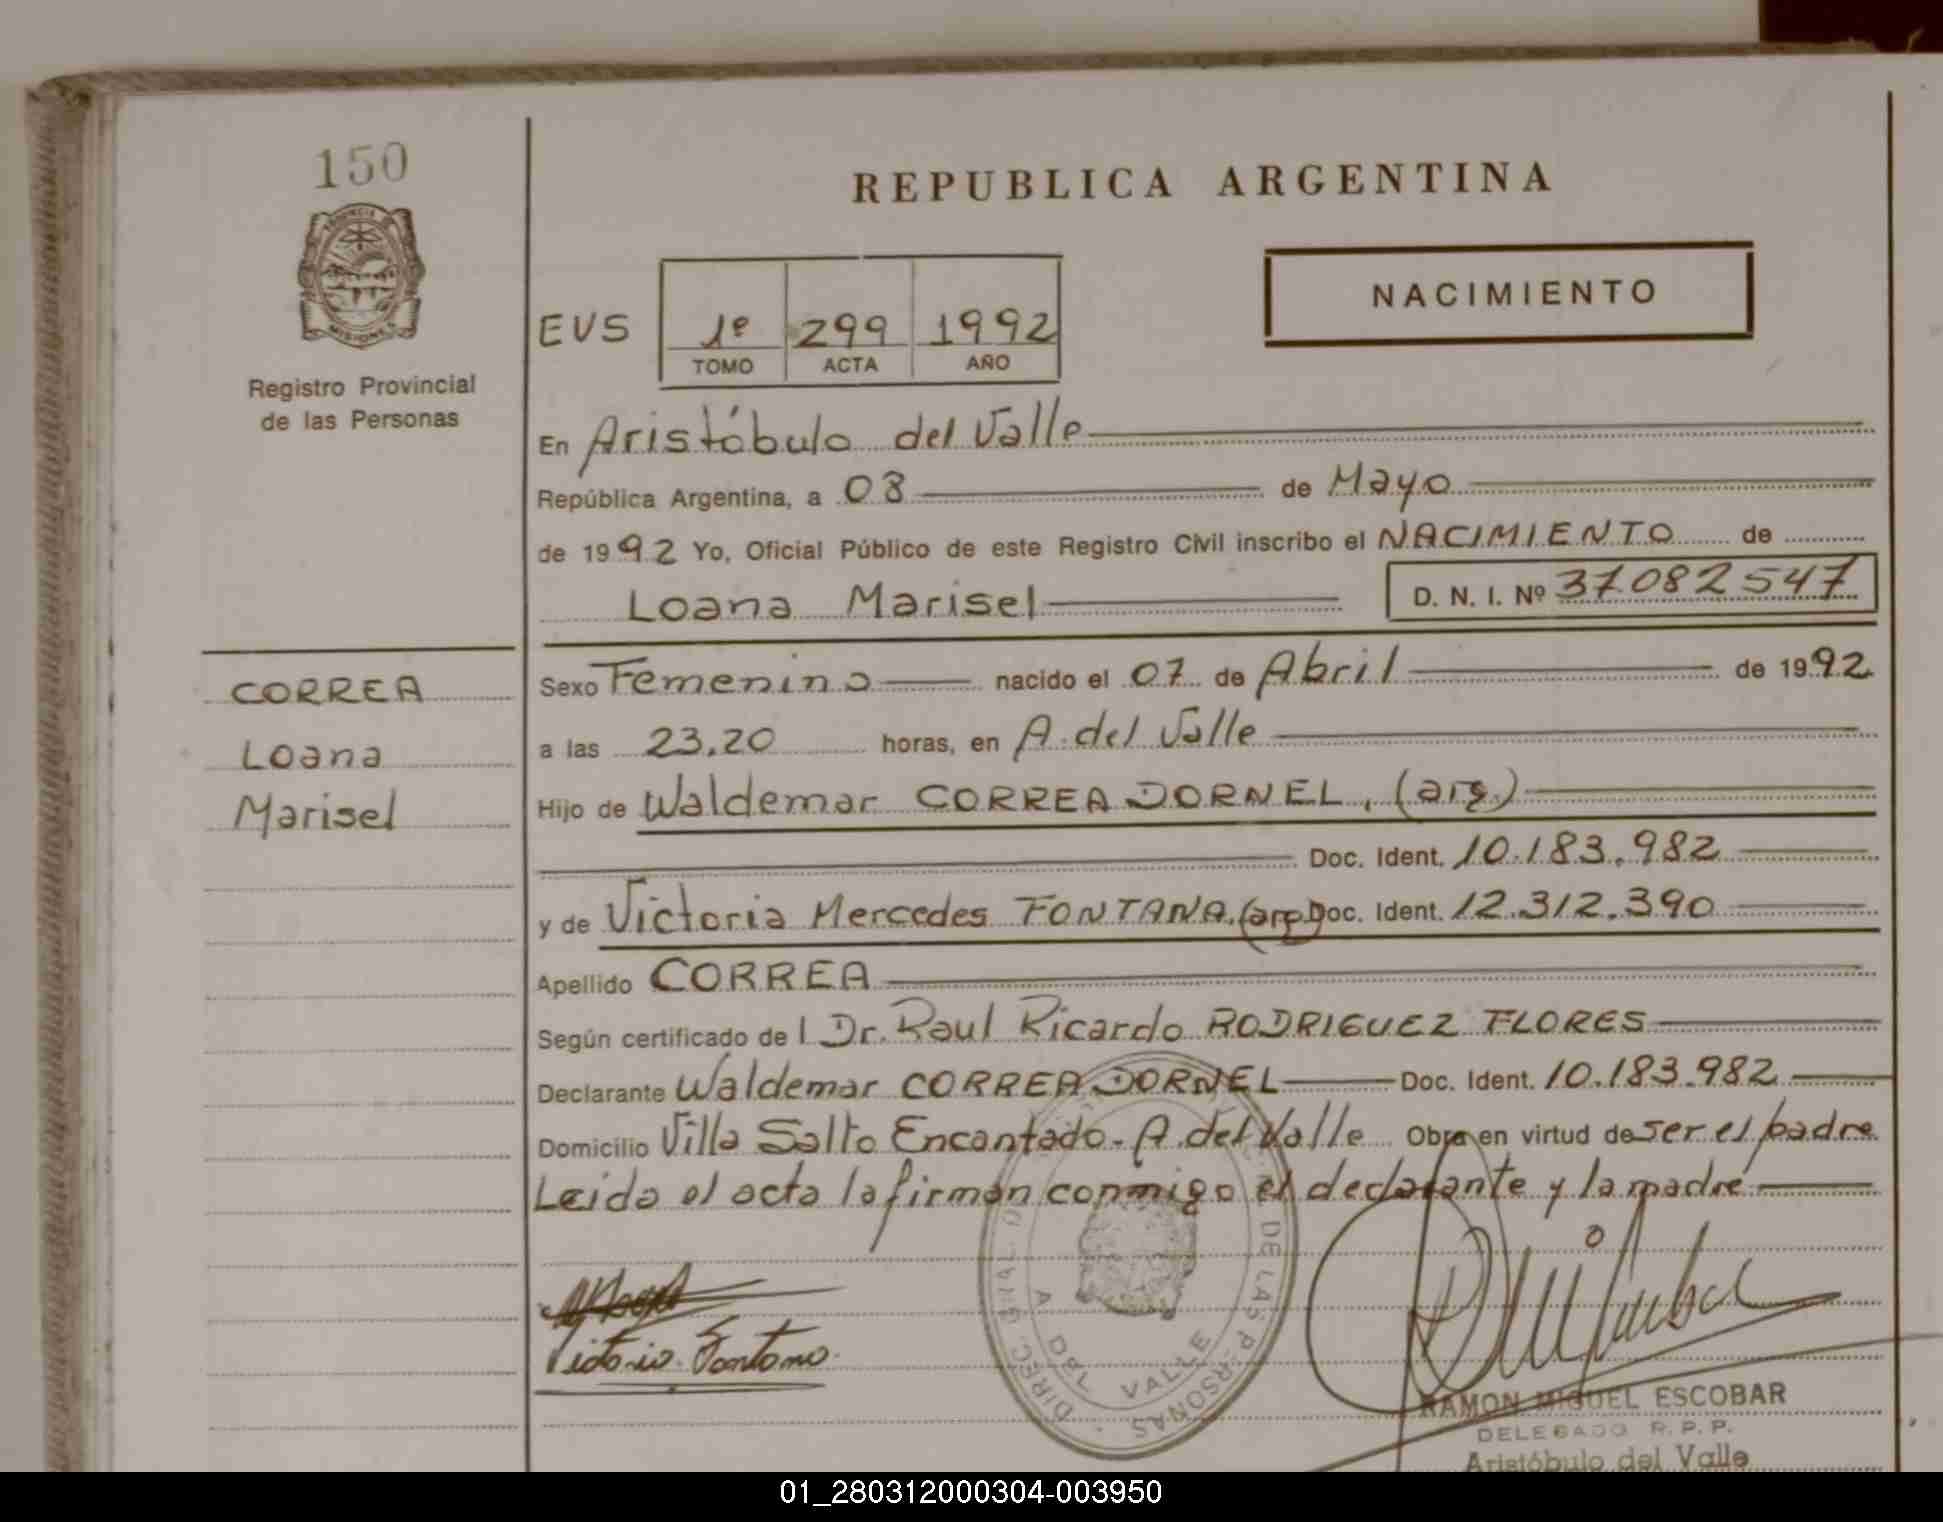 150
REPUBLICA ARGENTINA
NACIMIENTO
EVS 1º 299 1992
TOMO ACTA AÑO
Registro Provincial
de las Personas
En Aristóbulo del Valle
República Argentina, a 08 de Mayo
de 1992 Yo, Oficial Público de este Registro Civil inscribo el NACIMIENTO de
Loana Marisel D. N. I. Nº 37082547
CORREA
Loana
Marisel
Sexo Femenino nacido el 07 de Abril de 1992
a las 23.20 horas, en A. del Valle
Hijo de Waldemar CORREA DORNEL, (arg.)
Doc. Ident. 10.183.982
y de Victoria Mercedes FONTANA. (arg) Doc. Ident. 12.312.390
Apellido CORREA
Según certificado de l Dr. Raul Ricardo RODRIGUEZ FLORES
Declarante Waldemar CORREA DORNEL Doc. Ident. 10.183.982
Domicilio Villa Salto Encantado. A. del Valle Obra en virtud de ser el padre
Leida el acta la firman conmigo el declarante y la madre
Victoria Fontana
A DEL VALLE
DE LAS PERSONAS
RAMON MIGUEL ESCOBAR
DELEGADO R.P.P.
Aristóbulo del Valle
01_280312000304-003950